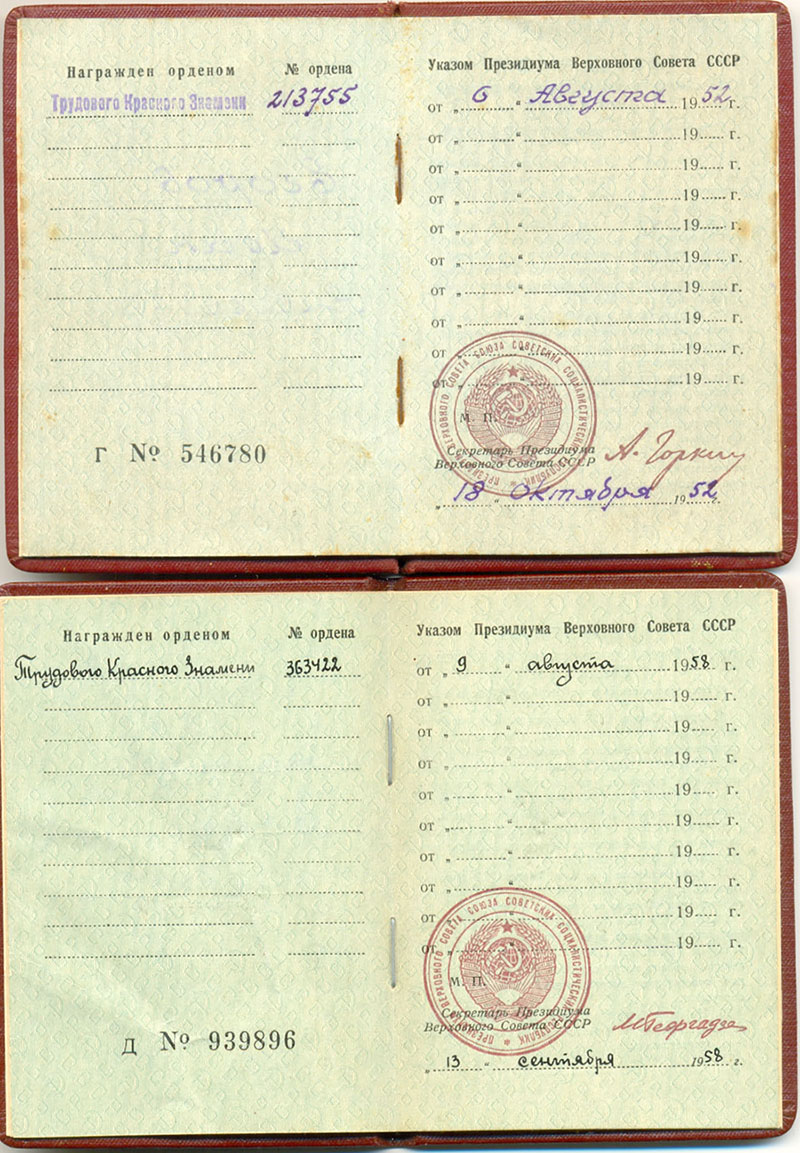 Награжден орденом № ордена
Трудового Красного Знамени 213755
Г № 546780
Указом Президиума Верховного Совета СССР
от „ 6 “ Августа 1952 г.
от „ “ 19 г.
от „ “ 19 г.
от „ “ 19 г.
от „ “ 19 г.
от „ “ 19 г.
от „ “ 19 г.
от „ “ 19 г.
от „ “ 19 г.
от „ “ 19 г.
М. П.
Секретарь Президиума
Верховного Совета СССР
А. Горкин
„ 18 “ Октября 1952
Награжден орденом № ордена
Трудового Красного Знамени 363422
Д № 939896
Указом Президиума Верховного Совета СССР
от „ 9 “ августа 1958 г.
от „ “ 19 г.
от „ “ 19 г.
от „ “ 19 г.
от „ “ 19 г.
от „ “ 19 г.
от „ “ 19 г.
от „ “ 19 г.
от „ “ 19 г.
от „ “ 19 г.
М. П.
Секретарь Президиума
Верховного Совета СССР
М Георгадзе
„ 13 “ сентября 1958 г.